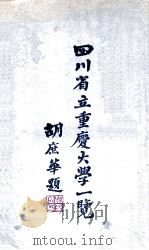 四川省立重慶大學一覽
胡庶華題
mtoou.info